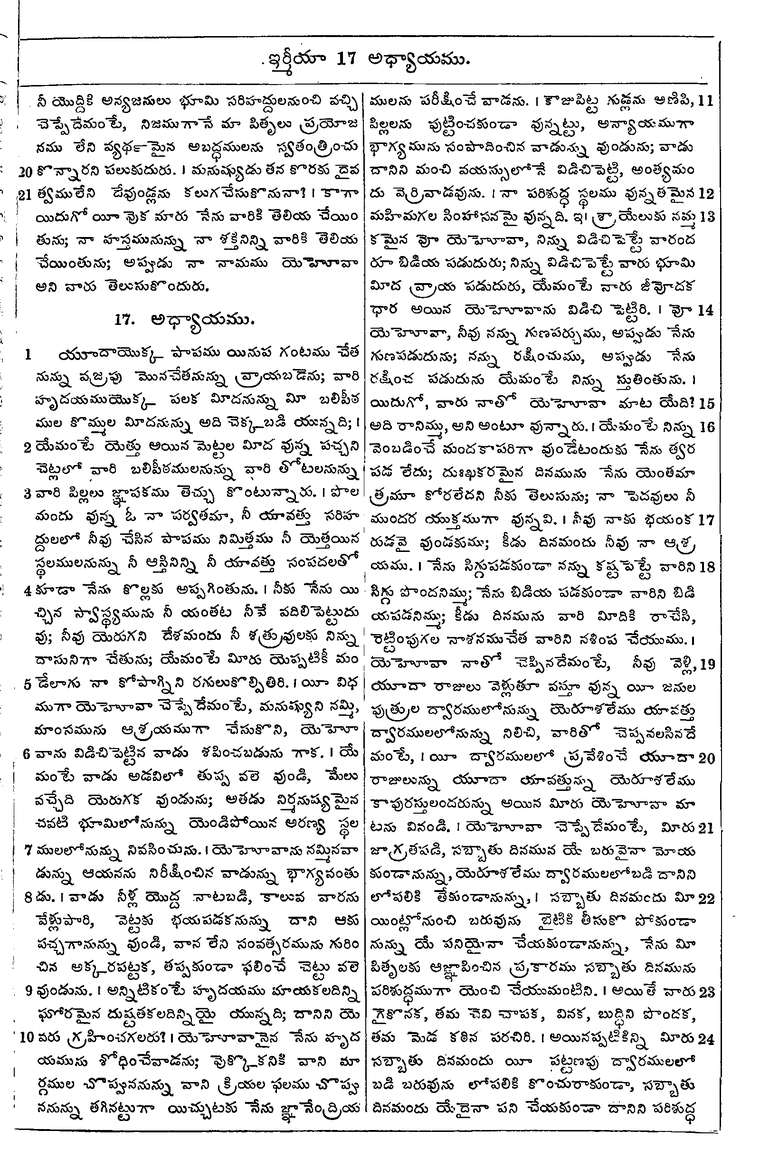 ఇర్మీయా 17 అధ్యాయము.
నీ యొద్దికి అన్యజనులు భూమి సరిహద్దులనుంచి వచ్చి
చెప్పేదేమంటే, నిజముగానే మా పితృలు ప్రయోజ
నము లేని వ్యర్థమైన అబద్ధములను స్వతంత్రించు
20 కొన్నారని పలుకుదురు. । మనుష్యుడు తన కొరకు దైవ
21 త్వములేని దేవుండ్లను కలుగచేసుకొనునా? । కాగా
యిదుగో యీ పైక మారు నేను వారికి తెలియ చేయిం
తును; నా హస్తమునున్ను నా శక్తినిన్ని వారికి తెలియ
చేయింతును; అప్పుడు నా నామము యెహోవా
అని వారు తెలుసుకొందురు.
17. అధ్యాయము.
1 యూదాయొక్క పాపము యినుప గంటము చేత
నున్ను వజ్రపు మొనచేతనున్ను వ్రాయబడెను; వారి
హృదయముయొక్క పలక మీదనున్ను మీ బలిపీఠ
ముల కొమ్ముల మీదనున్ను అది చెక్కబడి యున్నది; ।
2 యేమంటే యెత్తు అయిన మెట్టల మీద వున్న పచ్చని
చెట్లలో వారి బలిపీఠములనున్ను వారి తోటలనున్ను
3 వారి పిల్లలు జ్ఞాపకము తెచ్చు కొంటున్నారు. । పొల
మందు వున్న ఓ నా పర్వతమా, నీ యావత్తు సరిహ
ద్దులలో నీవు చేసిన పాపము నిమిత్తము నీ యెత్తయిన
స్థలములనున్ను నీ ఆస్తినిన్ని నీ యావత్తు సంపదలతో
4 కూడా నేను కొల్లకు అప్పగింతును. । నీకు నేను యి
చ్చిన స్వాస్థ్యమును నీ యంతట నీవే వదిలిపెట్టుదు
వు; నీవు యెరుగని దేశమందు నీ శత్రువులకు నిన్ను
దాసునిగా చేతును; యేమంటే మీరు యెప్పటికీ మం
5 డేలాగు నా కోపాగ్ని రగులుకొల్పితిరి. । యీ విధ
ముగా యెహోవా చెప్పేదేమంటే, మనుష్యుని నమ్మి,
మాంసమును ఆశ్రయముగా చేసుకొని, యెహో
6 వాను విడిచిపెట్టిన వాడు శపించబడును గాక. । యే
మంటే వాడు అడవిలో తుప్ప వలె వుండి, మేలు
వచ్చేది యెరుగక వుండును; అతడు నిర్మనుష్యమైన
చవటి భూమిలోనున్ను యెండిపోయిన అరణ్య స్థల
7 ములలోనున్ను నివసించును. । యెహోవాను నమ్మినవా
డున్ను ఆయనను నిరీక్షించిన వాడున్ను భాగ్యవంతు
8 డు. । వాడు నీళ్ల యొద్ద నాటబడి, కాలువ వారను
వేళ్లుపారి, వెట్టకు భయపడకనున్ను దాని ఆకు
పచ్చగానున్ను వుండి, వాన లేని సంవత్సరమును గురిం
చిన అక్కరపట్టక, తప్పకుండా ఫలించే చెట్టు వలె
9 వుండును. । అన్నిటికంటే హృదయము మాయకలదిన్ని
ఘోరమైన దుష్టతకలదిన్నియై యున్నది; దానిని యె
10 వరు గ్రహించగలరు? । యెహోవానైన నేను హృద
యమును శోధించేవాడను; వొక్కొకనికి వాని మా
ర్గముల చొప్పుననున్ను వాని క్రియల ఫలము చొప్పు
ననున్ను తగినట్టుగా యిచ్చుటకు నేను జ్ఞానేంద్రియ
ములను పరీక్షించే వాడను. । కౌజుపిట్ట గుడ్లను అణిపి, 11
పిల్లలను పుట్టించకుండా వున్నట్టు, అన్యాయముగా
భాగ్యమును సంపాదించిన వాడున్ను వుండును; వాడు
దానిని మంచి వయస్సులోనే విడిచిపెట్టి, అంత్యమం
దు వెర్రివాడవును. । నా పరిశుద్ధ స్థలము వున్నతమైన 12
మహిమగల సింహాసనమై వున్నది. । ఇశ్రాయేలుకు నమ్మ 13
కమైన వో యెహోవా, నిన్ను విడిచిపెట్టే వారంద
రూ బిడియ పడుదురు; నిన్ను విడిచిపెట్టే వారు భూమి
మీద వ్రాయ పడుదురు, యేమంటే వారు జీవోదక
ధార అయిన యెహోవాను విడిచి పెట్టిరి. । వో 14
యెహోవా, నీవు నన్ను గుణపర్చుము, అప్పుడు నేను
గుణపడుదును; నన్ను రక్షించుము, అప్పుడు నేను
రక్షించ పడుదును యేమంటే నిన్ను స్తుతింతును. ।
యిదుగో, వారు నాతో యెహోవా మాట యేది? 15
అది రానిమ్ము, అని అంటూ వున్నారు. । యేమంటే నిన్ను 16
వెంబడించే మందకాపరిగా వుండేటందుకు నేను త్వర
పడ లేదు; దుఃఖకరమైన దినమును నేను యెంతమా
త్రమూ కోరలేదని నీకు తెలుసును; నా పెదవులు నీ
ముందర యుక్తముగా వున్నవి. । నీవు నాకు భయంక 17
రుడవై వుండకుము; కీడు దినమందు నీవు నా ఆశ్ర
యము. । నేను సిగ్గుపడకుండా నన్ను కష్టపెట్టే వారిని 18
సిగ్గు పొందనిమ్ము; నేను బిడియ పడకుండా వారిని బిడి
యపడనిమ్ము; కీడు దినమును వారి మీదికి రాచేసి,
రెట్టింపుగల నాశనముచేత వారిని నశింప చేయుము. ।
యెహోవా నాతో చెప్పినదేమంటే, నీవు వెళ్లి, 19
యూదా రాజులు వెళ్లుతూ వస్తూ వున్న యీ జనుల
పుత్రుల ద్వారములోనున్ను యెరూశలేము యావత్తు
ద్వారములలోనున్ను నిలిచి, వారితో చెప్పవలసినదే
మంటే, । యీ ద్వారములలో ప్రవేశించే యూదా 20
రాజులున్ను యూదా యావత్తున్ను యెరూశలేము
కాపురస్తులందరున్ను అయిన మీరు యెహోవా మా
టను వినండి. । యెహోవా చెప్పేదేమంటే, మీరు 21
జాగ్రతపడి, సబ్బాతు దినమున యే బరువైనా మోయ
కుండానున్ను, యెరూశలేము ద్వారములలోబడి దానిని
లోపలికి తేకుండానున్ను, । సబ్బాతు దినమందు మీ 22
యింట్లోనుంచి బరువును బైటికి తీసుకొ పోకుండా
నున్ను యే పనియైనా చేయకుండానున్ను, నేను మీ
పితృలకు ఆజ్ఞాపించిన ప్రకారము సబ్బాతు దినమును
పరిశుద్ధముగా యెంచి చేయుమంటిని. । అయితే వారు 23
గైకొనక, తమ చెవి చాపక, వినక, బుద్ధిని పొందక,
తమ మెడ కఠిన పరచిరి. । అయినప్పటికిన్ని మీరు 24
సబ్బాతు దినమందు యీ పట్టణపు ద్వారములలో
బడి బరువును లోపలికి కొంచురాకుండా, సబ్బాతు
దినమందు యేదైనా పని చేయకుండా దానిని పరిశుద్ధ